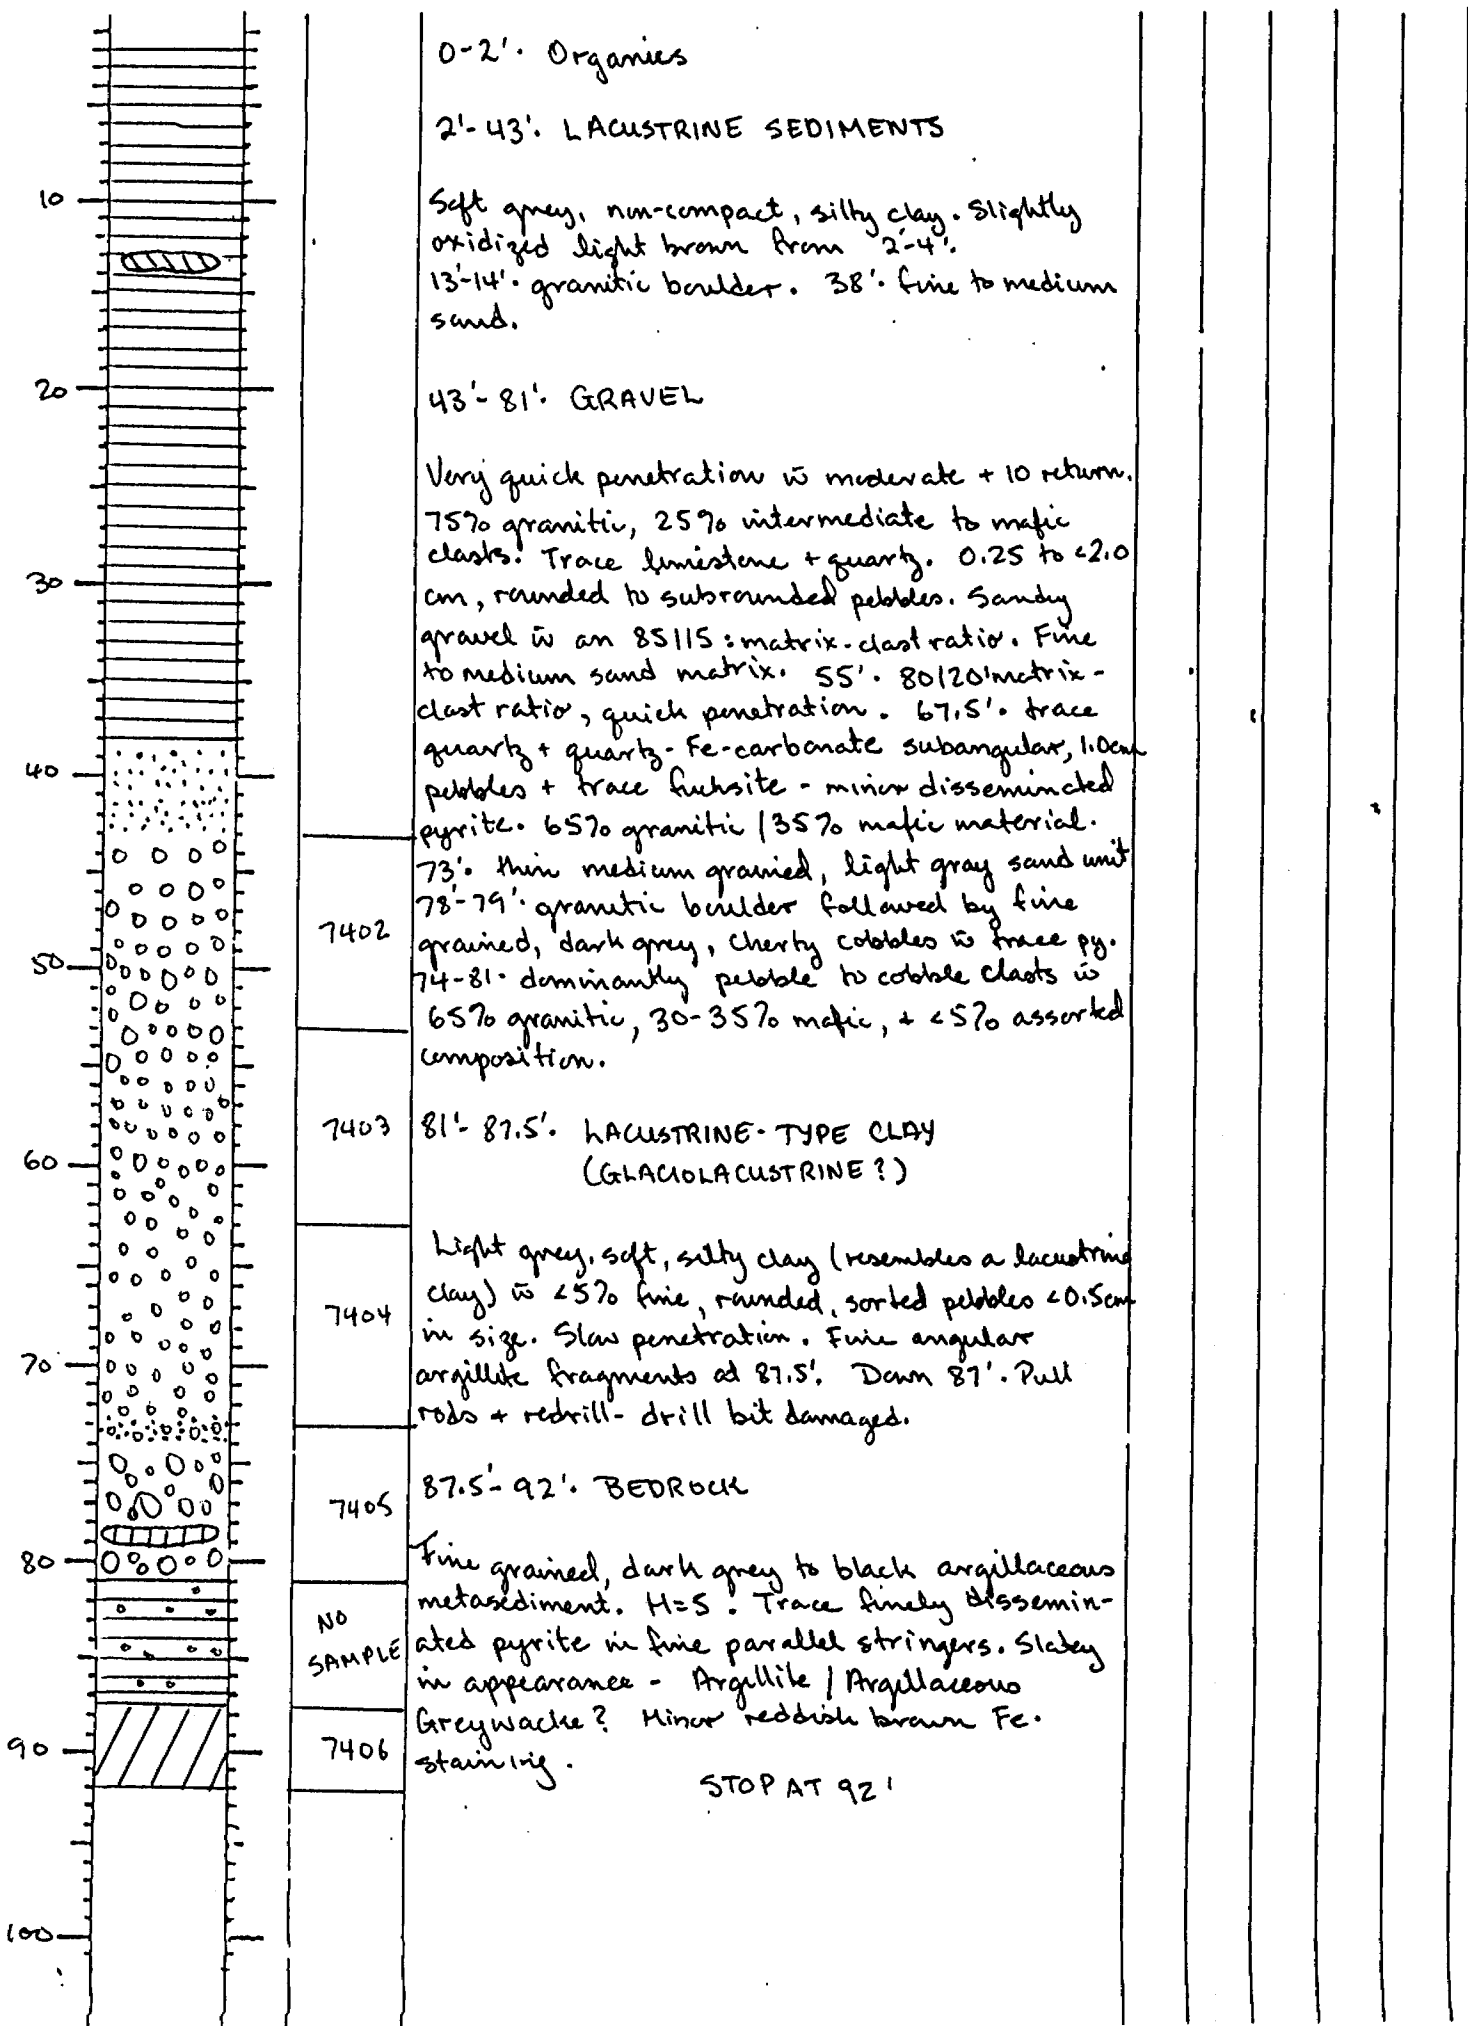 0-2'. Organics
2'-43'. LACUSTRINE SEDIMENTS
10
Soft grey, non-compact, silty clay. Slightly
oxidized light brown from 2'-4'.
13'-14'. granitic boulder. 38'. fine to medium
sand.
20
43'-81'. GRAVEL
Very quick penetration w̄ moderate + 10 return.
75% granitic, 25% intermediate to mafic
clasts. Trace limestone + quartz. 0.25 to <2.0
30
cm, rounded to subrounded pebbles. Sandy
gravel w̄ an 85/15 : matrix-clast ratio. Fine
to medium sand matrix. 55'. 80/20 matrix-
clast ratio, quick penetration. 67.5'. trace
quartz + quartz-Fe-carbonate subangular, 1.0cm
40
pebbles + trace fuchsite - minor disseminated
pyrite. 65% granitic / 35% mafic material.
73'. thin medium grained, light gray sand unit
78'-79'. granitic boulder followed by fine
7402
grained, dark grey, cherty cobbles w̄ trace py.
50
74-81. dominantly pebble to cobble clasts w̄
65% granitic, 30-35% mafic, + <5% assorted
composition.
7403
81'-87.5'. LACUSTRINE-TYPE CLAY
60
(GLACIOLACUSTRINE?)
Light grey, soft, silty clay (resembles a lacustrine
clay) w̄ <5% fine, rounded, sorted pebbles <0.5cm
7404
in size. Slow penetration. Fine angular
70
argillite fragments at 87.5'. Down 87'. Pull
rods + redrill - drill bit damaged.
7405
87.5'-92'. BEDROCK
80
Fine grained, dark grey to black argillaceous
metasediment. H=5. Trace finely dissemin-
NO
SAMPLE
ated pyrite in fine parallel stringers. Slatey
in appearance - Argillite / Argillaceous
Greywacke? Minor reddish brown Fe.
90
7406
staining.
STOP AT 92'
100